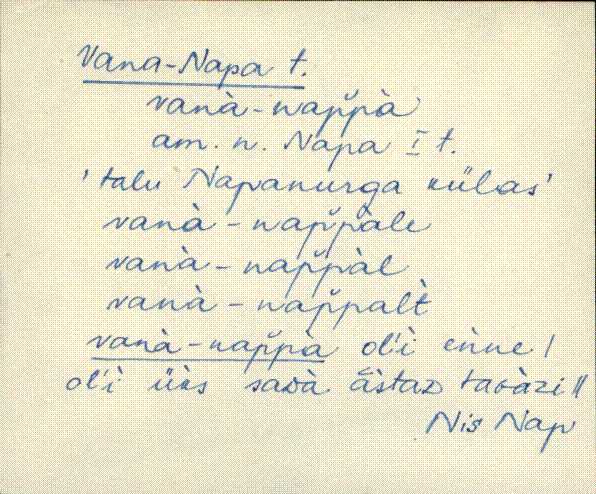 Vana-Napa t.
vanà-nap̆p̆à
am. n. Napa I t.
'talu Napanurga külas'
vanà-nap̆p̆àle
vanà-nap̆p̆àl
vanà-nap̆p̆alt̀
vanà-nap̆p̆à ol'ì eǹne /
ol'ì üks savà tavàzi //
Nis Nap